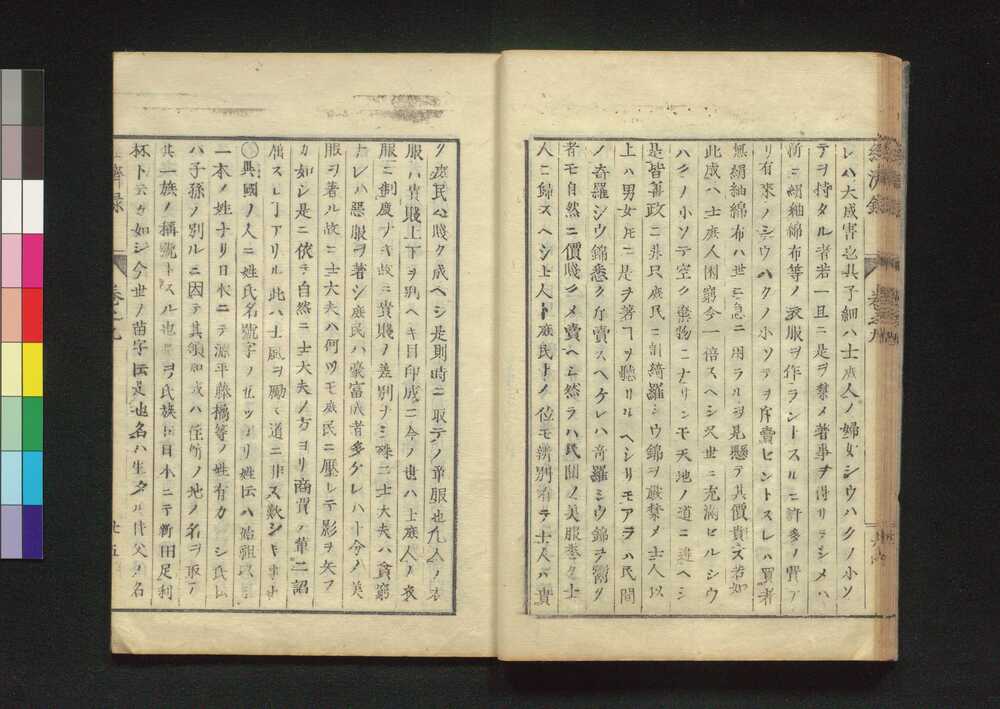 經濟錄 卷之九
レハ大成害也其子細ハ士庶人ノ婦女シウハクノ小ソ
テヲ持タル者若一旦ニ是ヲ禁メ著事ヲ得リラシメハ
新ニ絹紬綿布等ノ衣服ヲ作ラントスルニ許多ノ費ア
リ有來ノシウハクノ小ソテヲ斥賣ヒントスレハ買者
無絹紬綿布ハ世ニ急ニ用ラルヲ見懸テ其價貴シ若如
此成ハ士庶人困窮今一倍スヘシ又世ニ充滿ヒルシウ
ハクノ小ソテ空ク棄物ニナリンモ天地ノ道ニ違ヘシ
是皆善政ニ非只庶民ニ計綺羅シウ錦ヲ嚴禁メ士人以
上ハ男女凡ニ是ヲ著フヿヲ聽リルヘシリモアラハ民間
ノ奇羅シウ錦悉ク斥賣スヘケレハ奇羅シウ錦ヲ鬻ク
者モ自然ニ價賤クメ賣ヘシ然ラハ民間ノ美服悉ク士
人ニ歸スヘシ士人ト庶民トノ位モ辨別有テ士人ハ貴
ク庶民ハ賤ク成ヘシ是則時ニ取テノ章服也凡人ノ衣
服ハ貴賤上下ヲ別ヘキ目印成ニ今ノ世ハ士庶人ノ衣
服ニ制度ナキ故ニ貴賤ノ差別ナシ殊ニ士大夫ハ貧窮
ナレハ惡服ヲ著シ庶民ハ豪富成者多ケレハ十分ノ美
服ヲ著ル故ニ士大夫ハ何ツモ庶民ニ壓レテ影ヲ失フ
カ如シ是ニ依テ自然ニ士大夫ノ方ヨリ商賈ノ輩ニ諂
屈スルヿアリル此ハ士風ヲ勵ス道ニ非ス歎シキ事也
〇異國ノ人ニ姓氏名號字ノ五ツアリ姓ト云ハ始祖以來
一本ノ姓ナリ日本ニテ源平藤橘等ノ姓有カ シ氏ト云
ハ子孫ノ別ルニ因テ其領知或ハ住所ノ地ノ名ヲ取テ
其一族ノ稱號トスル也 ヲ氏族ト 日本ニテ新田足利
杯ト云カ如シ今世ノ苗字ト云是也名ハ生タル時父ノ名
濟錄 卷之九 廿五